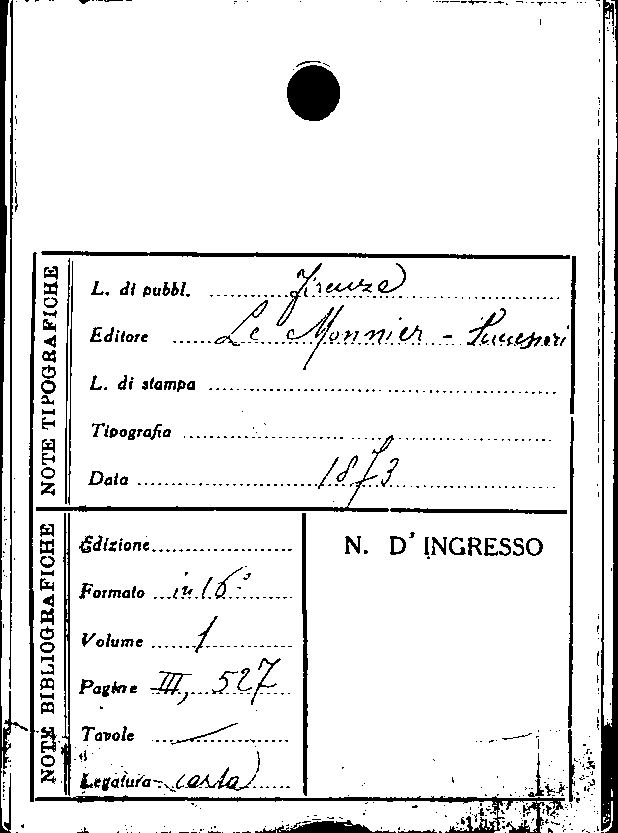 NOTE TIPOGRAFICHE
L. di pubbl. Firenze
Editore Le Monnier - Successori
L. di stampa
Tipografia
Data 1873
NOTE BIBLIOGRAFICHE
Edizione
Formato in 16°
Volume 1
Pagine III, 527
Tavole —
Legatura carta
N. D' INGRESSO